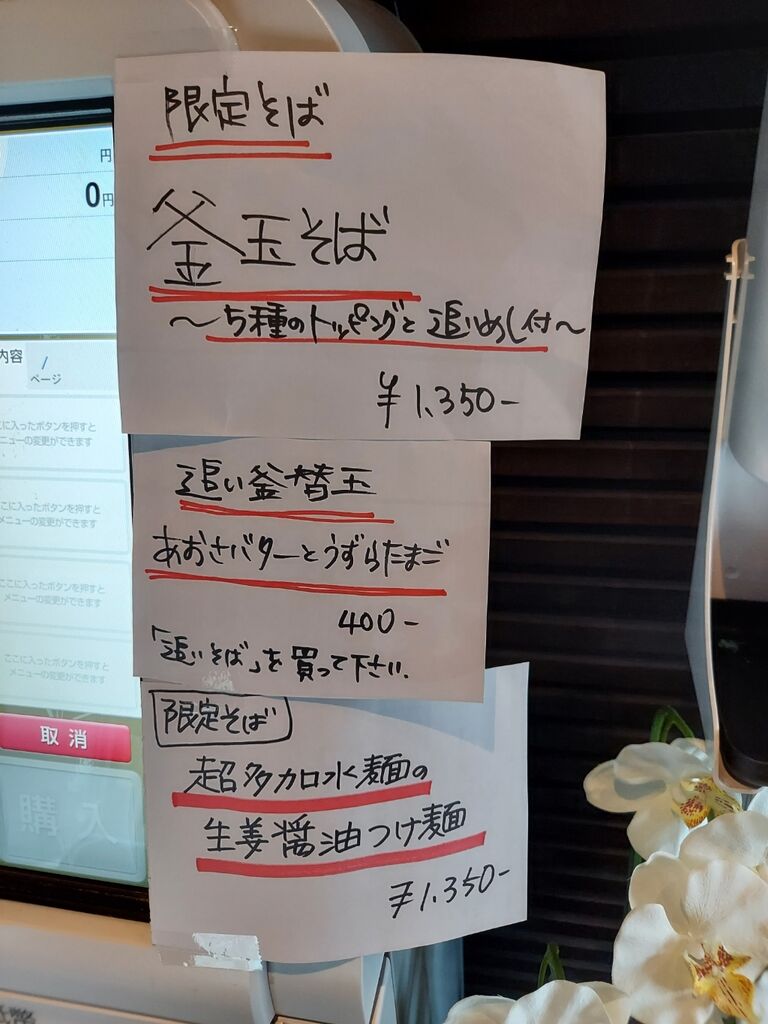 円
0円
内容
/
ページ
ここに入ったボタンを押すと
メニューの変更ができます
ここに入ったボタンを押すと
メニューの変更ができます
ここに入ったボタンを押すと
メニューの変更ができます
ここに入ったボタンを押すと
メニューの変更ができます
取消
購入
限定そば
釜玉そば
〜5種のトッピングと追いめし付〜
¥1,350-
追い釜替玉
あおさバターとうずらたまご
400-
「追いそば」を買って下さい.
限定そば
超多加水麺の
生姜醤油つけ麺
¥1,350-